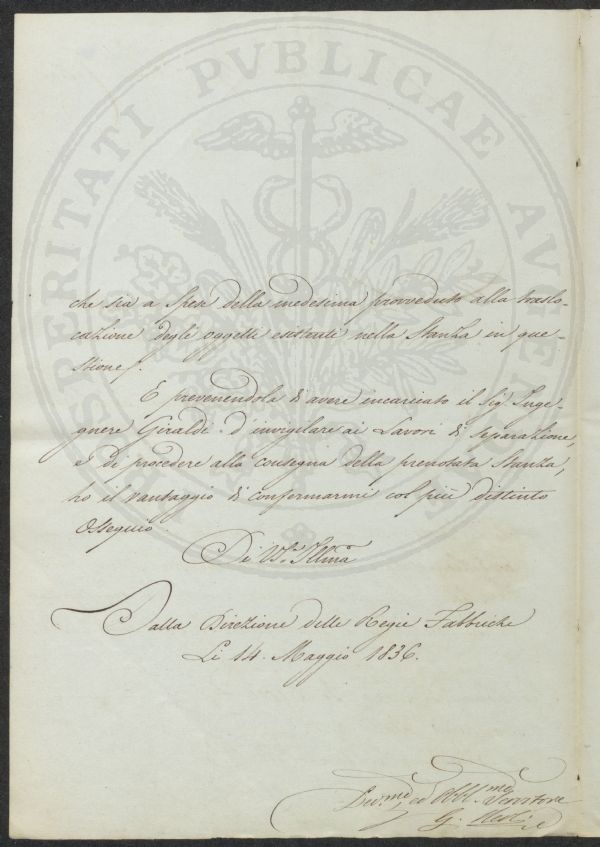 PROSPERITATI PVBLICAE AVGENDAE
che sia a spesa della medesima provveduto alla traslo-
cazione degli oggetti esistenti nella Stanza in que-
stione.
E prevenendola d'avere incaricato il Sig. Inge-
gnere Giraldi d'invigilare ai Lavori di separazione,
e di procedere alla consegna della prenotata Stanza,
ho il vantaggio di confermarmi col più distinto
Ossequio
Di VS. Illma
Dalla Direzione delle Regie Fabbriche
Li 14. Maggio 1836.
Dev.mo ed Obbl.mo Servitore
G.